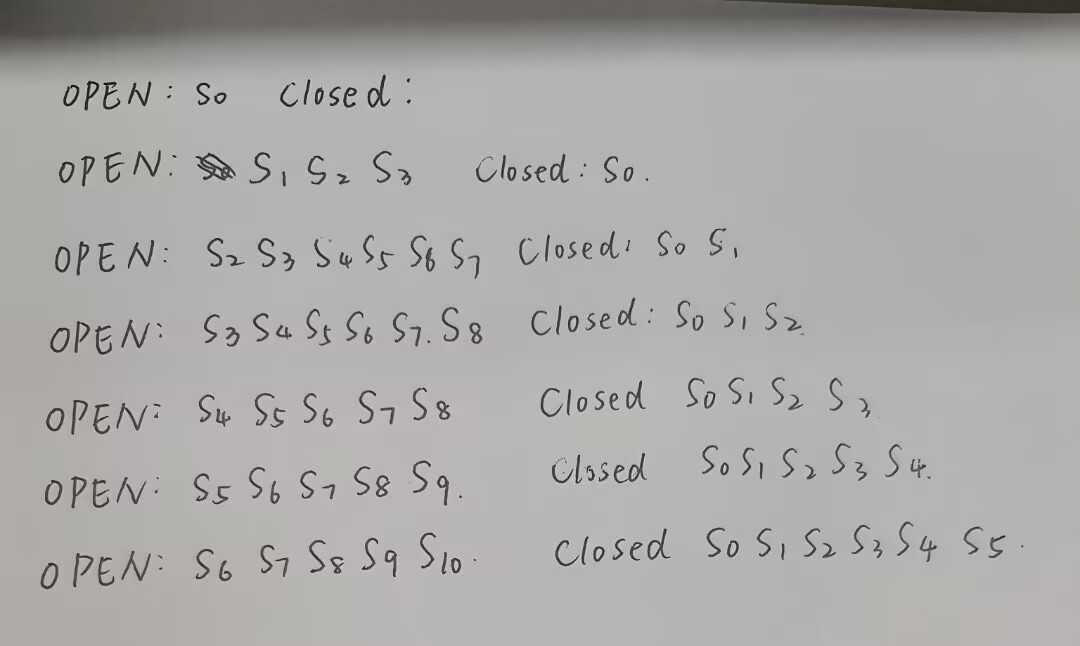 OPEN: S0 Closed:
OPEN: S1 S2 S3 Closed: S0.
OPEN: S2 S3 S4 S5 S6 S7 Closed: S0 S1
OPEN: S3 S4 S5 S6 S7. S8 Closed: S0 S1 S2.
OPEN: S4 S5 S6 S7 S8 Closed S0 S1 S2 S3
OPEN: S5 S6 S7 S8 S9. Closed S0 S1 S2 S3 S4.
OPEN: S6 S7 S8 S9 S10. Closed S0 S1 S2 S3 S4 S5.